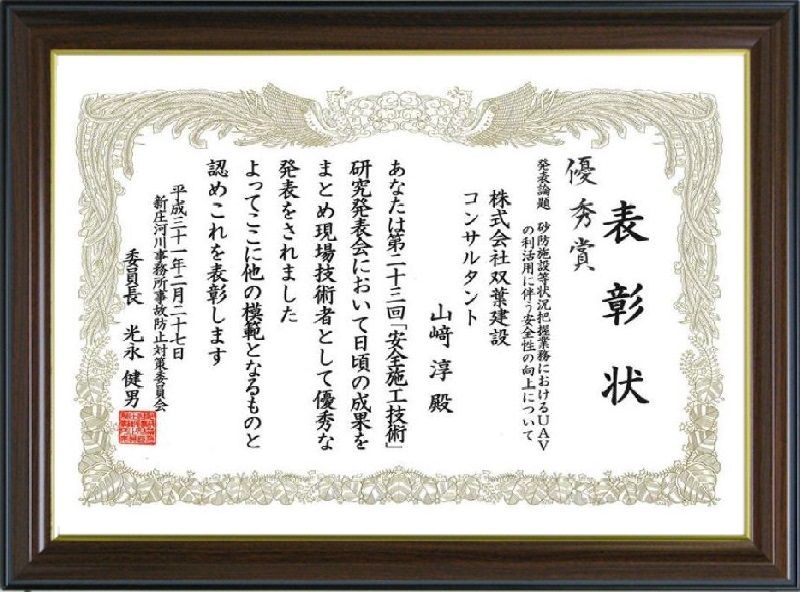 表彰状
優秀賞
発表論題 砂防施設等状況把握業務におけるUAV
の利活用に伴う安全性の向上について
株式会社双葉建設
コンサルタント
山﨑淳殿
あなたは第二十三回「安全施工技術」
研究発表会において日頃の成果を
まとめ現場技術者として優秀な
発表をされました
よってここに他の模範となるものと
認めこれを表彰します
平成三十一年二月二十七日
新庄河川事務所事故防止対策委員会
委員長 光永健男